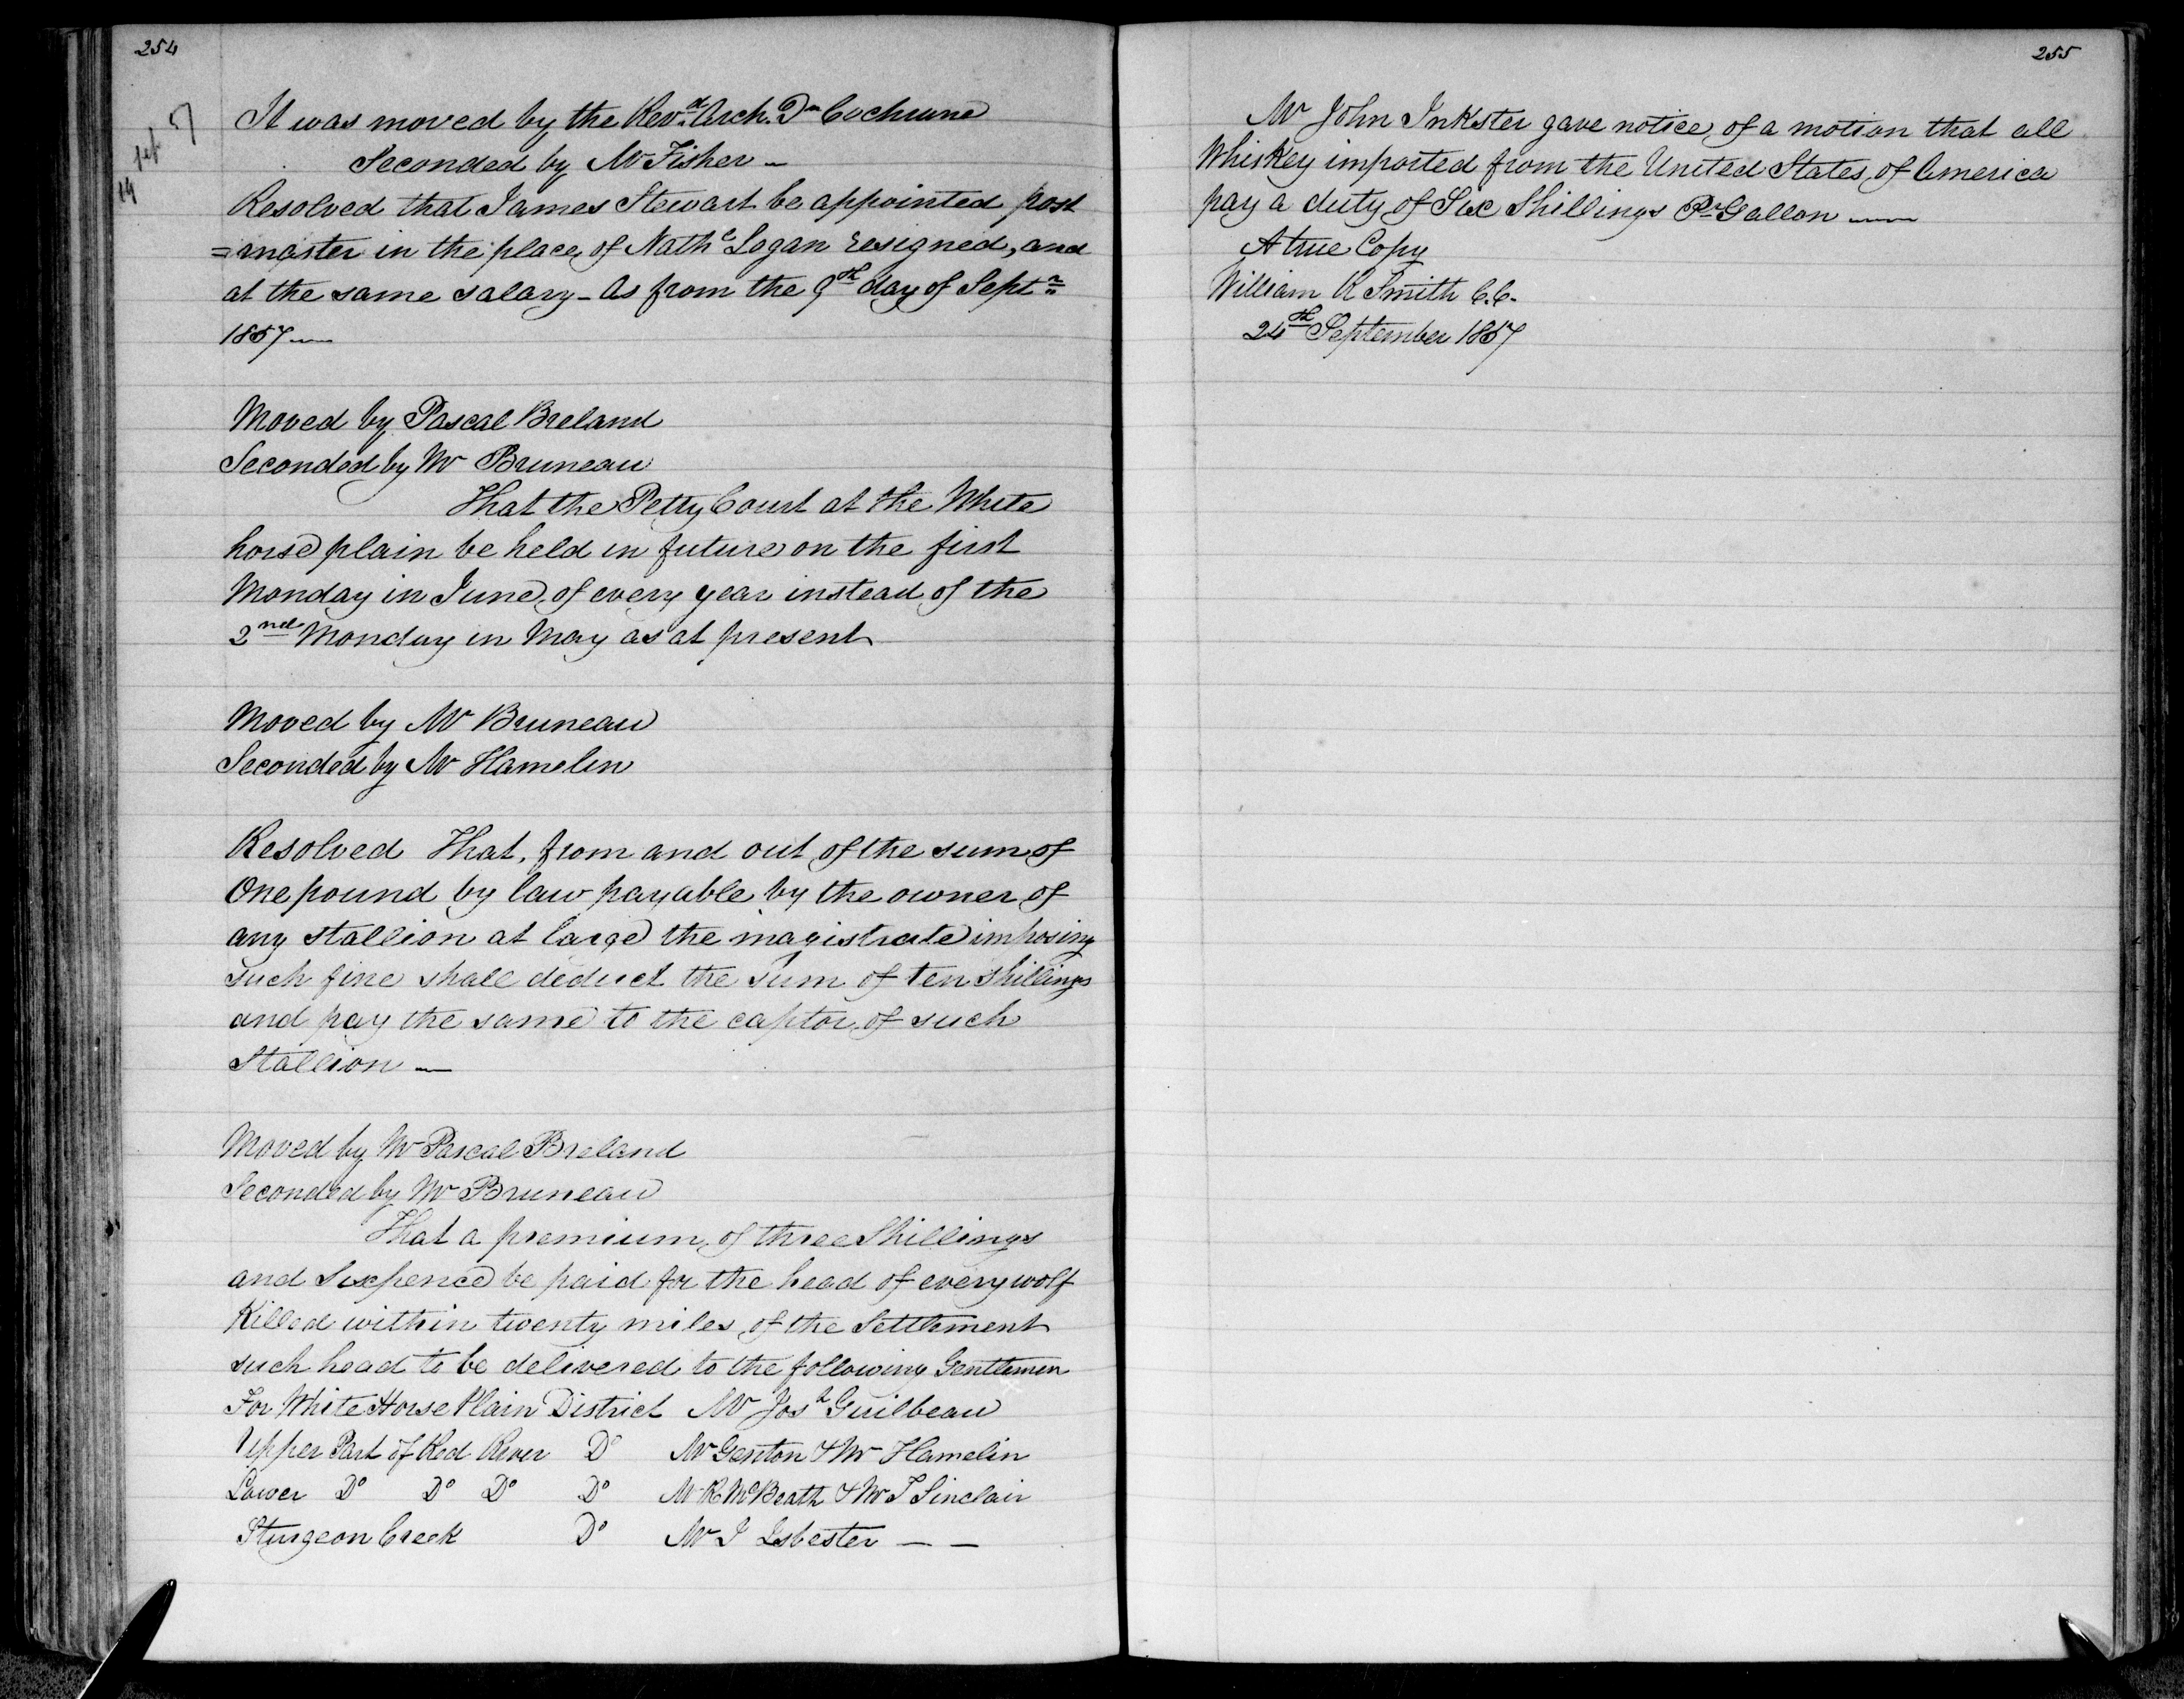 254
It was moved by the Revd. Arch. Dn Cochrane
Seconded by Mr Fisher –
Resolved that James Stewart be appointed post
=master in the place of Nathl Logan resigned, and
at the same salary – As from the 9th day of Septr
1857 —
Moved by Pascal Breland
Seconded by Mr Bruneau
That the Petty Court at the White
horse plain be held in future on the first
Monday in June of every year instead of the
2nd Monday in May as at present
Moved by Mr Bruneau
Seconded by Mr Hamelin
Resolved That, from and out of the sum of
One pound by law payable by the owner of
any stallion at large the magistrate imposing
such fine shall deduct the sum of ten shillings
and pay the same to the captor of such
Stallion —
Moved by Mr Pascal Breland
Seconded by Mr Bruneau
That a premium of three Shillings
and Sixpence be paid for the head of every wolf
Killed within twenty miles of the Settlement
such head to be delivered to the following Gentlemen
For White Horse Plain District Mr Josh Guilbeau
Upper Part of Red River Do Mr Genton & Mr Hamelin
Lower Do Do Do Do Mr R McBeath & Mr T Sinclair
Sturgeon Creek Do Mr J Isbester — —
255
Mr John Inkster gave notice of a motion that all
Whiskey imported from the United States of America
pay a duty of Six Shillings Pr Gallon —
A true Copy
William R Smith C.C.
24th September 1857